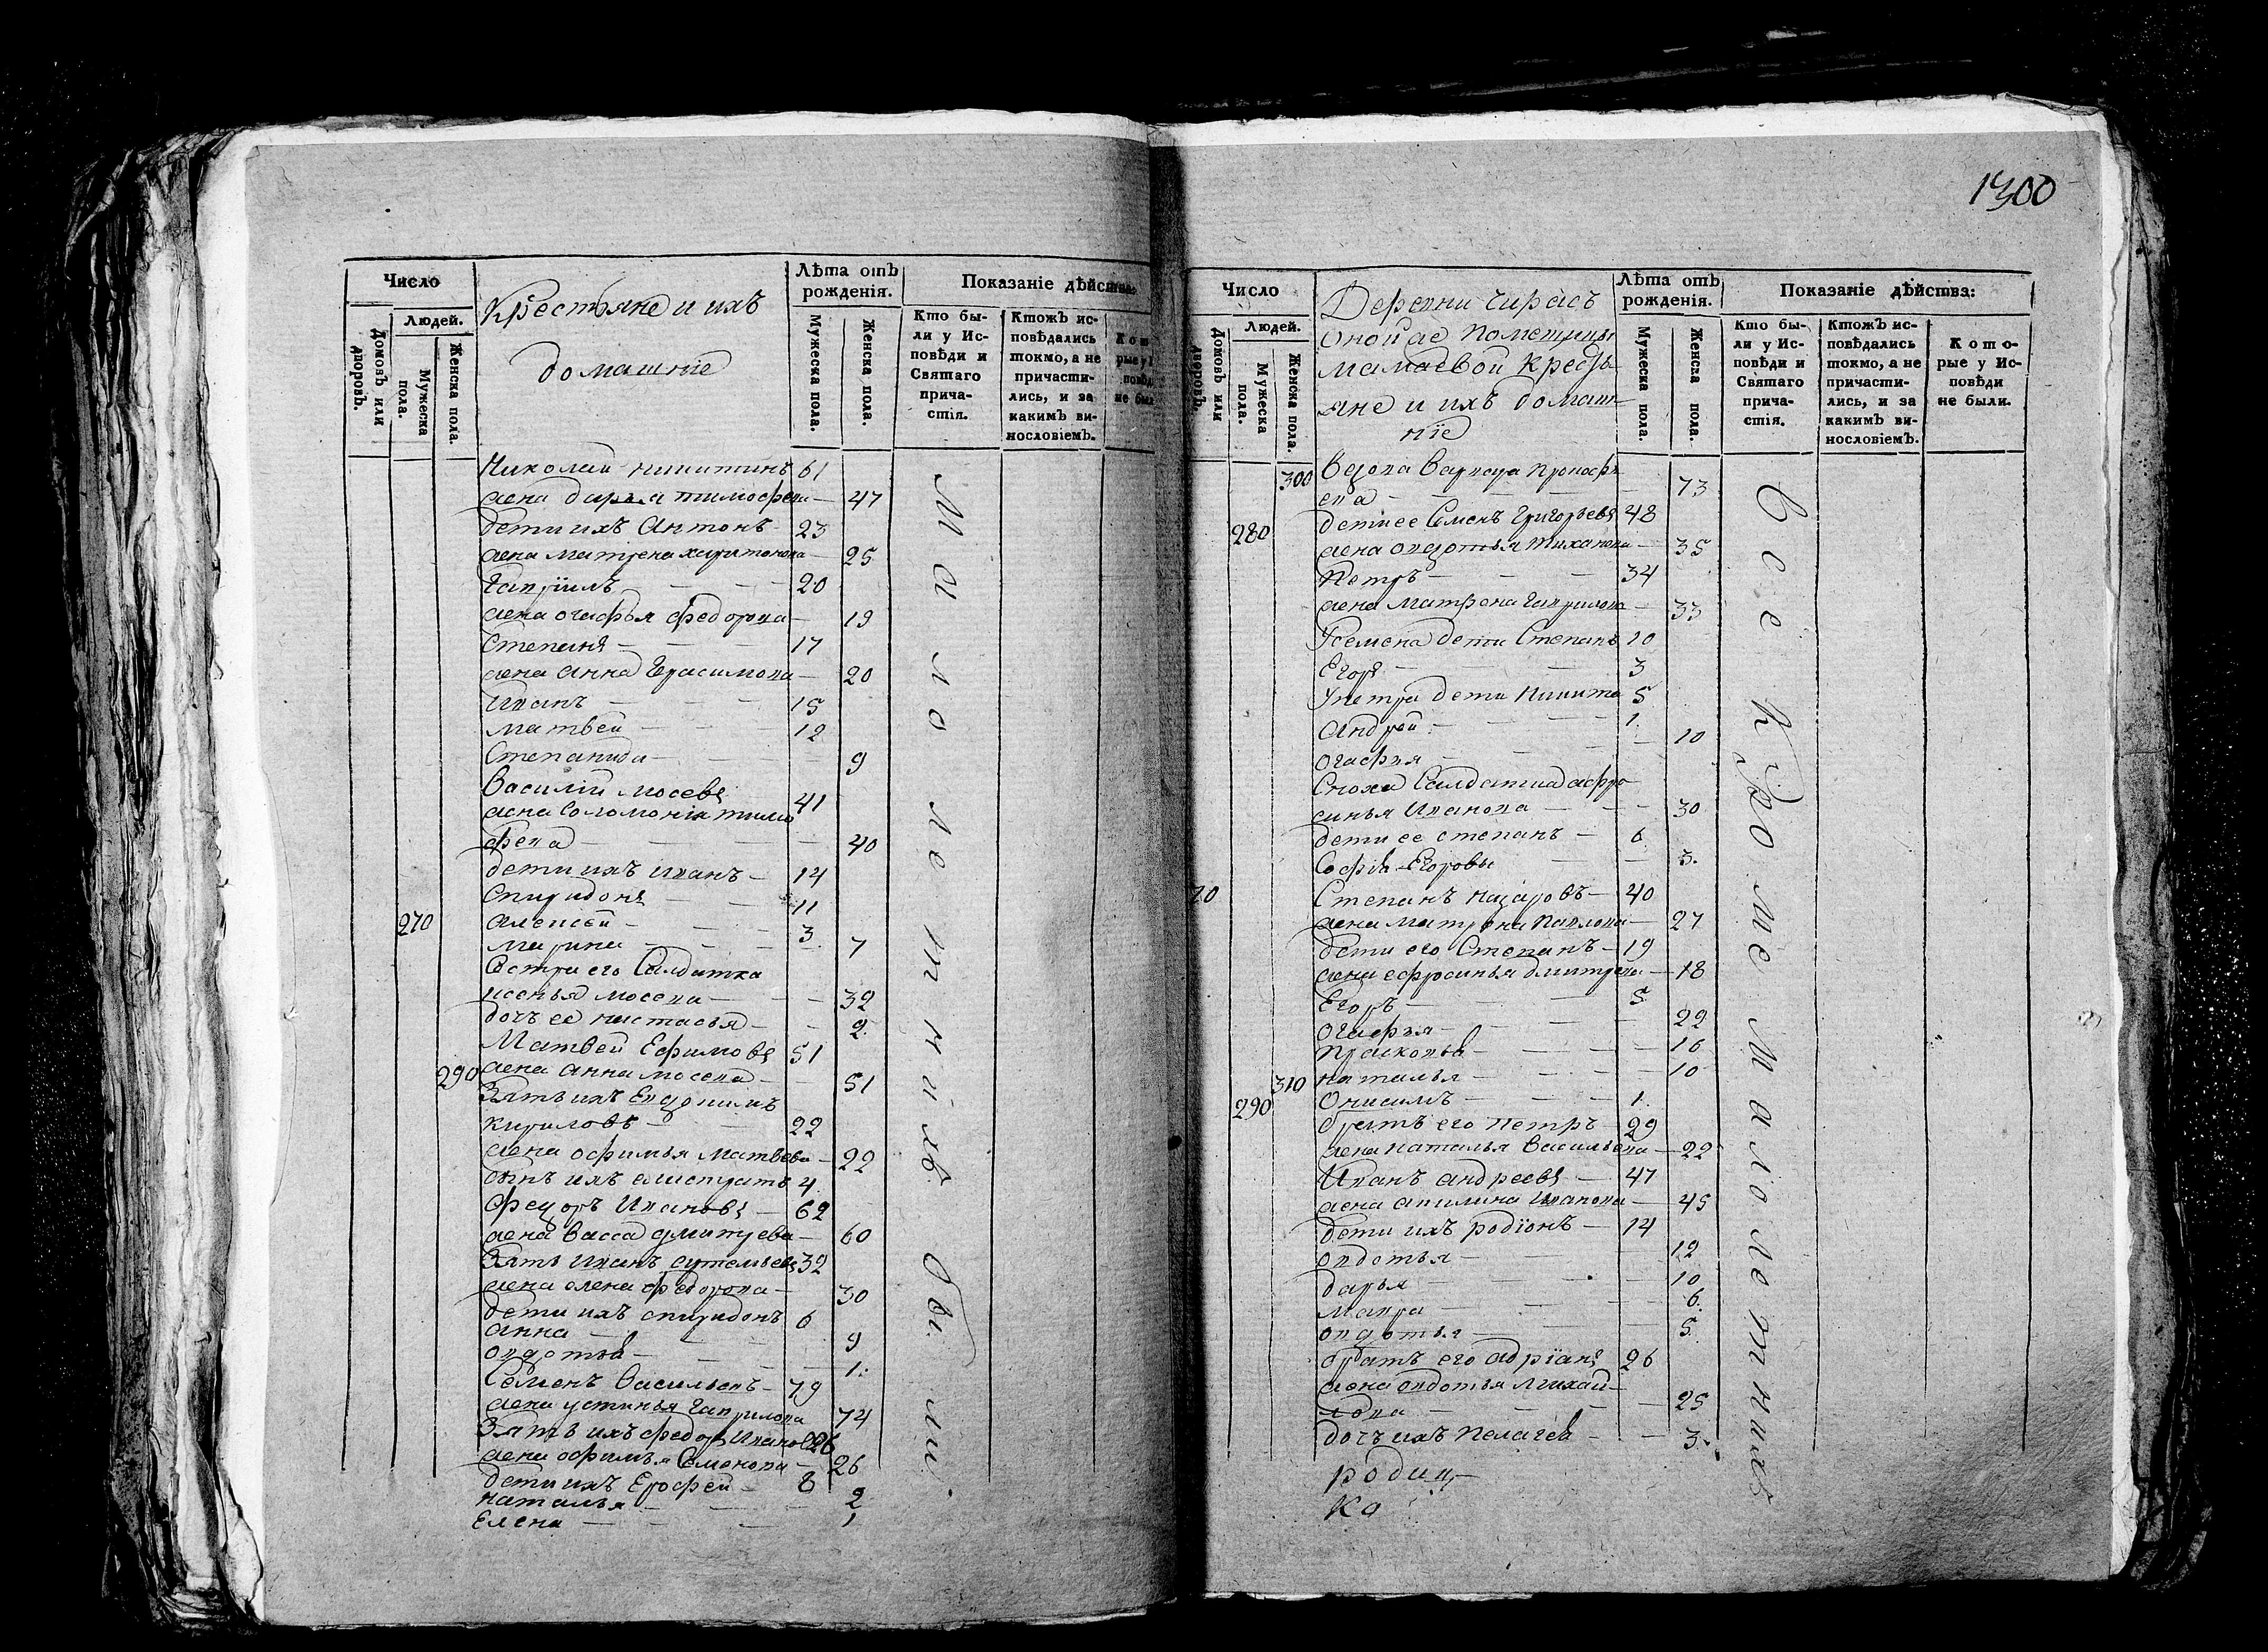 Число
Людей.
Домовъ или дворовъ.
Мужеска пола.
Женска пола.
Крестьяне и ихъ
домашніе
Лѣта отъ рожденія.
Мужеска пола.
Женска пола.
Показаніе дѣйства:
Кто были у Исповѣди и Святаго причастія.
Ктожъ исповѣдались токмо, а не причастились, и за какимъ винословіемъ.
Николай Никитинъ 61
жена дарья тимофева — 47
дети ихъ Антонъ — 23
жена матрена харитонова — 25
Гаврiилъ — — — 20
жена огафья федорова — 19
Степанъ — — — 17
жена анна Герасимова — 20
Иванъ — — — 15
матвей — — — 12
Степанида — — — 9
Василiй мосевъ 41
жена Соломонiя тимо
фева — — — 40
дети ихъ иванъ — 14
Спиридонъ — — 11
270 алексей — — — 3
марина — — — 7
Сестра его Салдатка
ксенья мосева — — 32
дочь ее настасья — — 2
Матвей Ефимовъ 51
290 жена анна мосева — — 51
Зять ихъ Евдокимъ
кириловъ — — — 22
жена офимья матвева — 22
сынъ ихъ елистратъ 4
федоръ Ивановъ — 62
жена васса дмитрева — 60
Зять иванъ савельевъ 32
жена елена федорова — 30
дети ихъ спиридонъ 6
анна — — — 9
овдотья — — — 1.
Семенъ Васильевъ — 79
жена устинья гаврилова 74
Зять ихъ федоръ Ивановъ 26
жена офимья Семенова — 26
дети ихъ Ерофей — 8
наталья — — — 2
Елена — — — 1
Малолетнихъ обы ли.
1300
Число
Людей.
Домовъ или дворовъ.
Мужеска пола.
Женска пола.
Деревни Чирасъ
оной же помещицы
мамаевой кресть
яне и ихъ домаш
нiе
Лѣта отъ рожденія.
Мужеска пола.
Женска пола.
Показаніе дѣйства:
Кто были у Исповѣди и Святаго причастія.
Ктожъ исповѣдались токмо, а не причастились, и за какимъ винословіемъ.
Которые у Исповѣди не были.
300 вдова варвара прокофь
ева — — — 73
280 дети ее Семенъ Григорьевъ 48
жена овдотья тиханова — 35
Петръ — — — 34
жена матрена гаврилова — 33
У семена дети Степанъ 10
Егоръ — — — 3
У петра дети никита 5
андрей — — — 1.
огафия — — — 10
Сноха Салдатка афро
синья Иванова — — 30
дети ее степанъ — 6
Софiя Егоровы — — 3.
70 Степанъ назаровъ — 40
жена матрена павлова — 27
дети его Степанъ — 19
жена ефросинья дмитрева — 18
Егоръ — — — 5
огафья — — — 22
Прасковья — — — 16
310 наталья — — — 10
290 Онисимъ — — — 1.
братъ его петръ — 29
жена наталья васильева — 22
Иванъ андреевъ — 47
жена акилина иванова — 45
дети ихъ родiонъ — 14
овдотья — — — 12
дарья — — — 10
мавра — — — 6.
овдотья — — — 5.
братъ его адрiанъ 26
жена овдотья михай
лова — — — 25
дочь ихъ пелагея — — 3.
Все кроме малолетнихъ
родив
ка